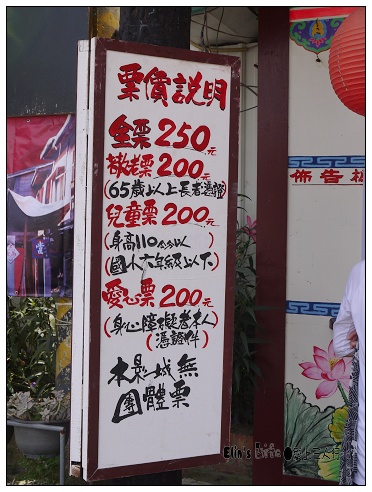 票價說明
全票250元
敬老票200元
(65歲以上長者憑證)
兒童票200元
(身高110公分以上)
(國小六年級以下)
愛心票200元
(身心障礙者本人)
(憑證件)
本影城無
團體票
佈告
Elin's Life